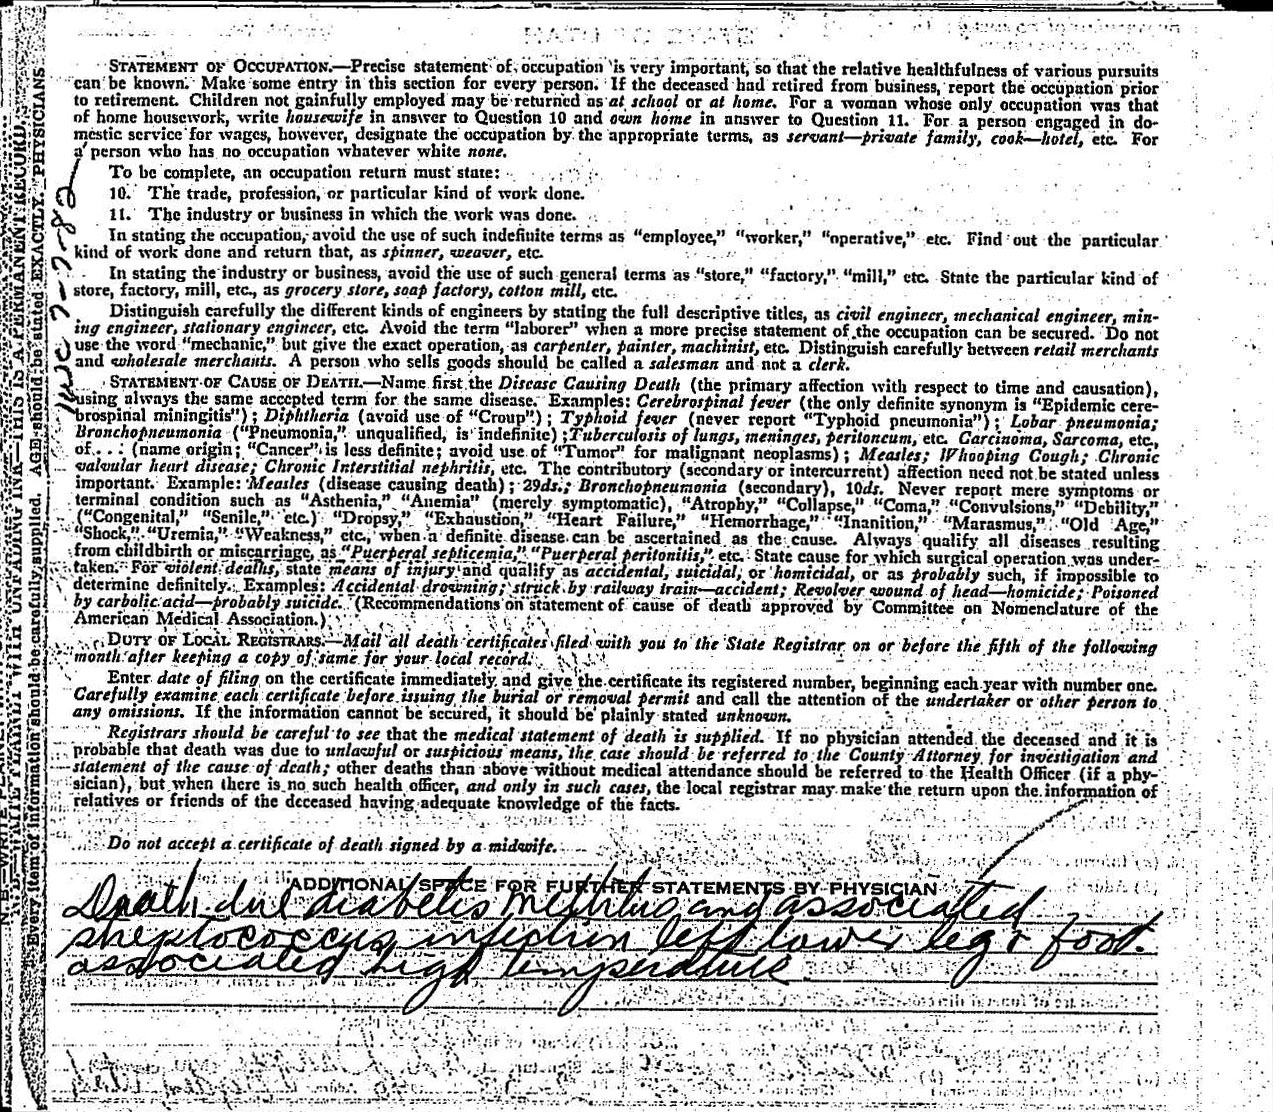 STATEMENT OF OCCUPATION.—Precise statement of occupation is very important, so that the relative healthfulness of various pursuits
can be known. Make some entry in this section for every person. If the deceased had retired from business, report the occupation prior
to retirement. Children not gainfully employed may be returned as at school or at home. For a woman whose only occupation was that
of home housework, write housewife in answer to Question 10 and own home in answer to Question 11. For a person engaged in do-
mestic service for wages, however, designate the occupation by the appropriate terms, as servant—private family, cook—hotel, etc. For
a person who has no occupation whatever white none.
To be complete, an occupation return must state:
10. The trade, profession, or particular kind of work done.
11. The industry or business in which the work was done.
In stating the occupation, avoid the use of such indefinite terms as "employee," "worker," "operative," etc. Find out the particular
kind of work done and return that, as spinner, weaver, etc.
In stating the industry or business, avoid the use of such general terms as "store," "factory," "mill," etc. State the particular kind of
store, factory, mill, etc., as grocery store, soap factory, cotton mill, etc.
Distinguish carefully the different kinds of engineers by stating the full descriptive titles, as civil engineer, mechanical engineer, min-
ing engineer, stationary engineer, etc. Avoid the term "laborer" when a more precise statement of the occupation can be secured. Do not
use the word "mechanic," but give the exact operation, as carpenter, painter, machinist, etc. Distinguish carefully between retail merchants
and wholesale merchants. A person who sells goods should be called a salesman and not a clerk.
STATEMENT OF CAUSE OF DEATH.—Name first the Disease Causing Death (the primary affection with respect to time and causation),
using always the same accepted term for the same disease. Examples: Cerebrospinal fever (the only definite synonym is "Epidemic cere-
brospinal miningitis"); Diphtheria (avoid use of "Croup"); Typhoid fever (never report "Typhoid pneumonia"); Lobar pneumonia;
Bronchopneumonia ("Pneumonia," unqualified, is indefinite); Tuberculosis of lungs, meninges, peritoneum, etc. Carcinoma, Sarcoma, etc.,
of...: (name origin; "Cancer" is less definite; avoid use of "Tumor" for malignant neoplasms); Measles; Whooping Cough; Chronic
valvular heart disease; Chronic Interstitial nephritis, etc. The contributory (secondary or intercurrent) affection need not be stated unless
important. Example: Measles (disease causing death); 29ds.; Bronchopneumonia (secondary), 10ds. Never report mere symptoms or
terminal condition such as "Asthenia," "Anemia" (merely symptomatic), "Atrophy," "Collapse," "Coma," "Convulsions," "Debility,"
("Congenital," "Senile," etc.) "Dropsy," "Exhaustion," "Heart Failure," "Hemorrhage," "Inanition," "Marasmus," "Old Age,"
"Shock," "Uremia," "Weakness," etc., when a definite disease can be ascertained as the cause. Always qualify all diseases resulting
from childbirth or miscarriage, as "Puerperal septicemia," "Puerperal peritonitis," etc. State cause for which surgical operation was under-
taken. For violent deaths, state means of injury and qualify as accidental, suicidal, or homicidal, or as probably such, if impossible to
determine definitely. Examples: Accidental drowning; struck by railway train—accident; Revolver wound of head—homicide; Poisoned
by carbolic acid—probably suicide. (Recommendations on statement of cause of death approved by Committee on Nomenclature of the
American Medical Association.)
DUTY OF LOCAL REGISTRARS.—Mail all death certificates filed with you to the State Registrar on or before the fifth of the following
month after keeping a copy of same for your local record.
Enter date of filing on the certificate immediately and give the certificate its registered number, beginning each year with number one.
Carefully examine each certificate before issuing the burial or removal permit and call the attention of the undertaker or other person to
any omissions. If the information cannot be secured, it should be plainly stated unknown.
Registrars should be careful to see that the medical statement of death is supplied. If no physician attended the deceased and it is
probable that death was due to unlawful or suspicious means, the case should be referred to the County Attorney for investigation and
statement of the cause of death; other deaths than above without medical attendance should be referred to the Health Officer (if a phy-
sician), but when there is no such health officer, and only in such cases, the local registrar may make the return upon the information of
relatives or friends of the deceased having adequate knowledge of the facts.
Do not accept a certificate of death signed by a midwife.
ADDITIONAL SPACE FOR FURTHER STATEMENTS BY PHYSICIAN
Death due diabetis mellitus and associated
streptococcus infection left lower leg & foot.
associated high temperature
WITH UNFADING INK—THIS IS A PERMANENT RECORD
Every item of information should be carefully supplied. AGE should be stated EXACTLY. PHYSICIANS